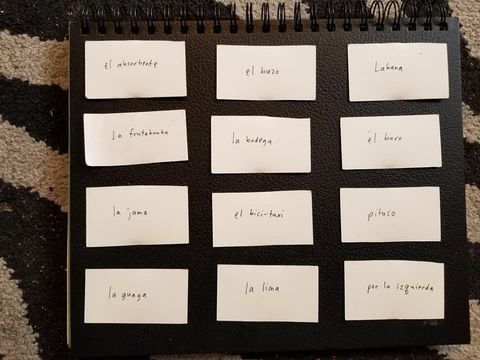 el absorbente
el buzo
Labana
la frutabomba
la bodega
el baro
la jama
el bici-taxi
pituso
la guaga
la lima
por la izquierda